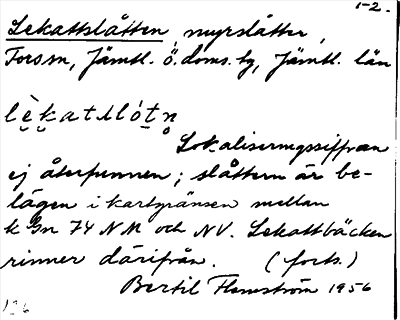 1-2.
Lekattslåtten, myrslåtter,
Forsm, Jämtl. ö. doms. tg, Jämtl. län
Lokaliseringssiffran
ej återfunnen; slåttern är be-
lägen i kartgränsen mellan
k 74 NM och NV. Lekattbäcken
rinner därifrån. (forts.)
Bertil Flemström 1956